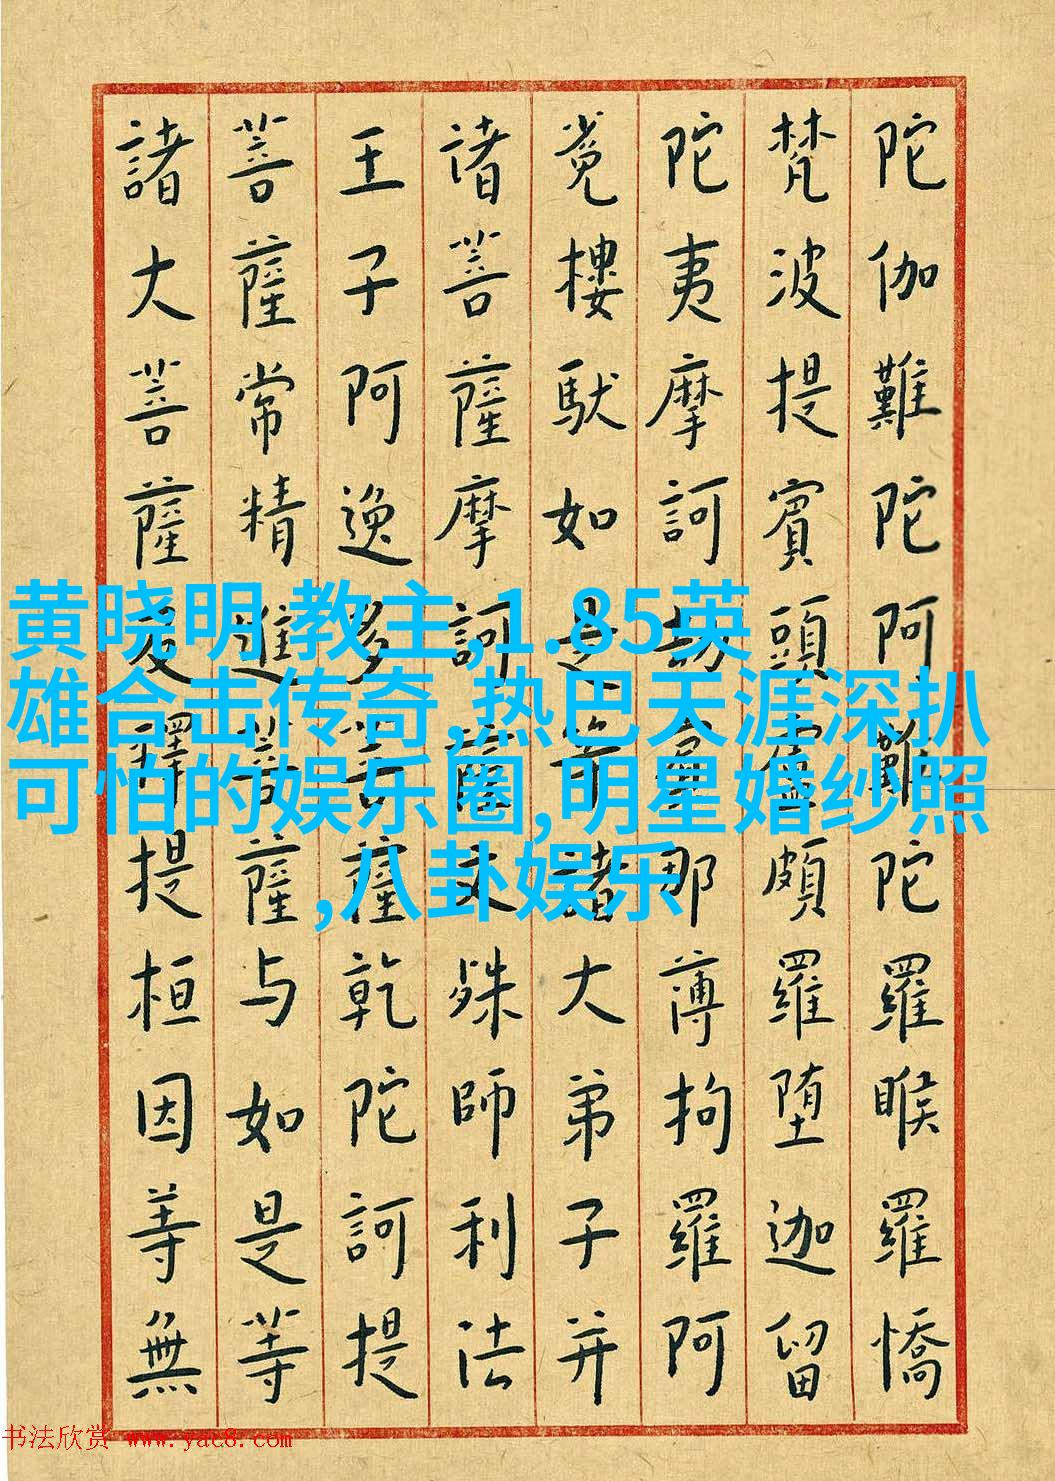 陀伽難陀阿難陀羅睺羅憍
梵波提賓頭盧頗羅堕迦留
陀夷摩訶劫賓那薄拘羅阿
樓馱如是等諸大弟子并
诸菩薩摩訶薩文殊師利法
王子阿逸多菩薩乾陀訶提
菩薩常精進菩薩与如是等
諸大菩薩及釋提桓因等無
黄晓明 教主,1.85英
雄合击传奇,热巴天涯深扒
可怕的娱乐圈,明星婚纱照
,八卦娱乐
书法欣赏 www.yac8.com